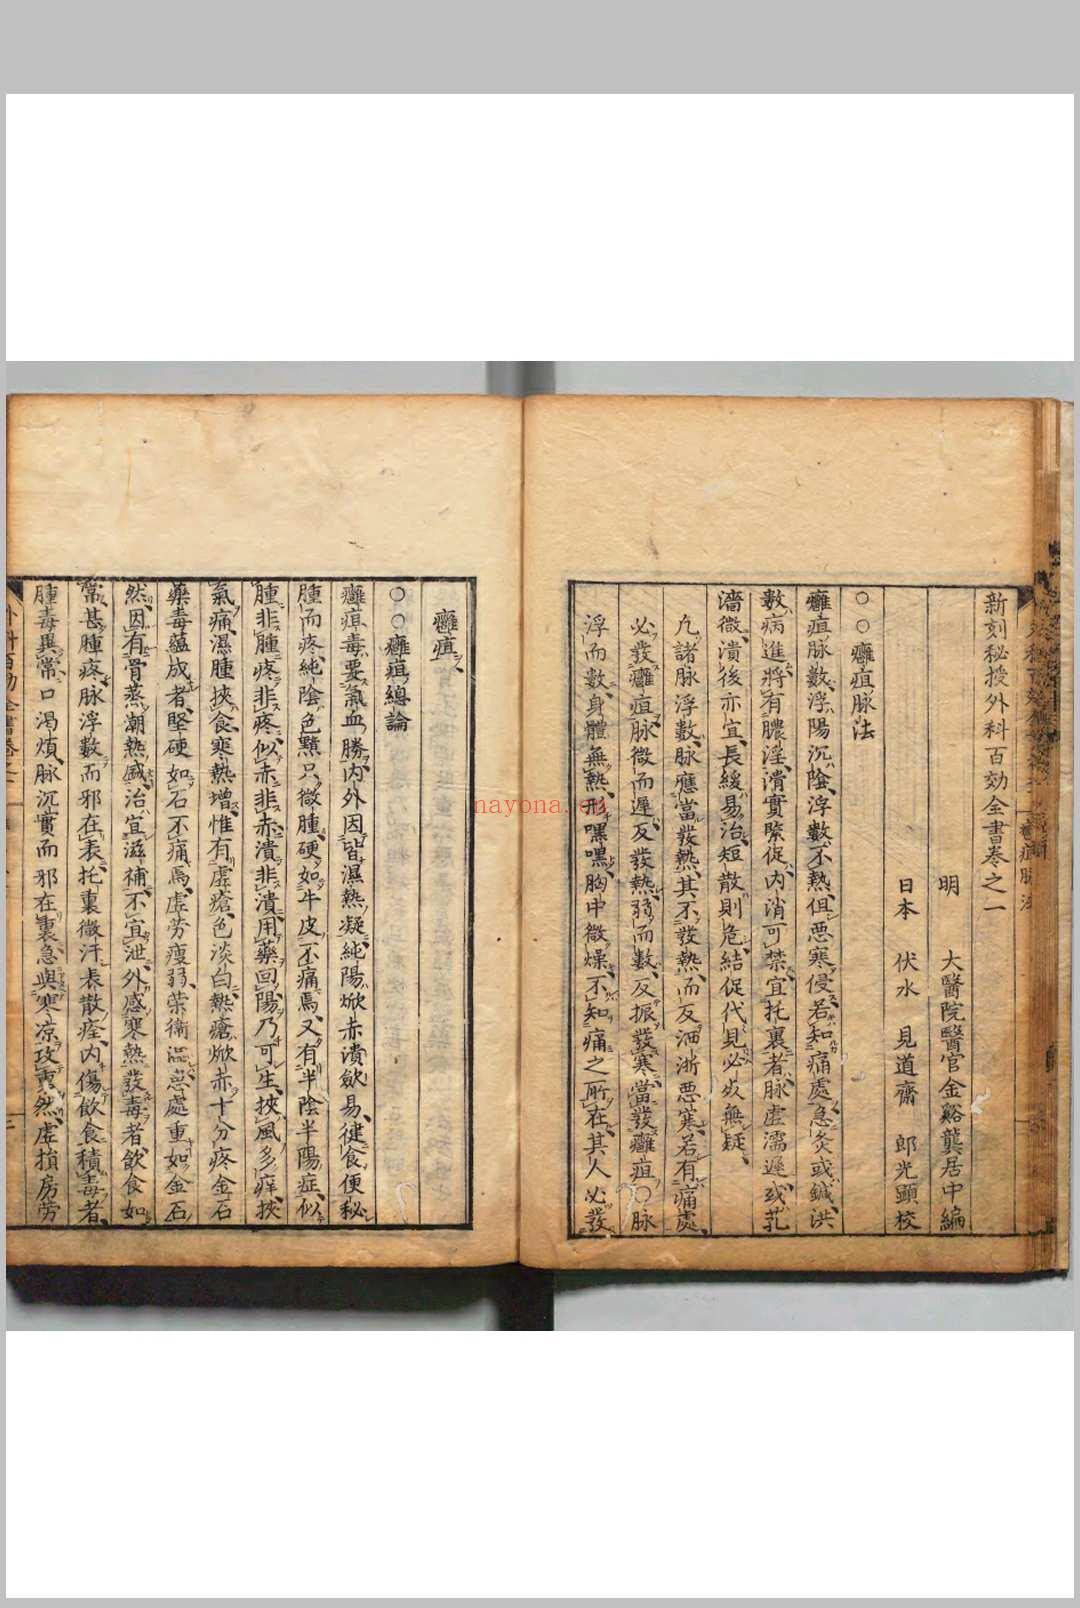 新刻秘授外科百効全書卷之一
明　大醫院醫官金谿龔居中編
日本　伏水　見道齋　郎光顕校
○○癰疽脉法
癰疽脉數浮陽沉陰浮數不熱但悪寒侵若知痛處急灸或鍼洪
數病進將有膿淫滑實緊促内消可禁宜托裏者脉虚濡遲或芤
濇微潰後亦宜長緩易治短散則危結促代見必妖無疑
凡諸脉浮數脉應當發熱其不發熱而反洒淅悪寒若有痛處
必發癰疽脉微而遲反發熱弱而數反振發寒當發癰疽○脉
浮而數身體無熱形嘿嘿胸中微燥不知痛之所在其人必發
癰疽
○○癰疽總論
癰疽毒要氣血勝内外因皆濕熱凝純陽焮赤潰斂易健食便秘
腫而疼純陰色黑只微腫硬如牛皮不痛焉又有半陰半陽症似
腫非腫疼非疼似赤非赤潰非潰用藥回陽乃可生挾風多痒挾
氣痛濕腫挾食寒熱增惟有虚瘡色淡白熱瘡焮赤十分疼金石
藥毒蘊成者堅硬如石不痛焉虚劳瘦弱荣衞澁患處重如金石
然因有骨蒸潮熱感治宜滋補不宜泄外感寒熱發毒者飲食如
常甚腫疼脉浮數而邪在表托裏微汗表散痊内傷飲食積毒者
腫毒異常口渴煩脉沉實而邪在裏急與寒凉攻裏然虚損房劳
nayona.cn